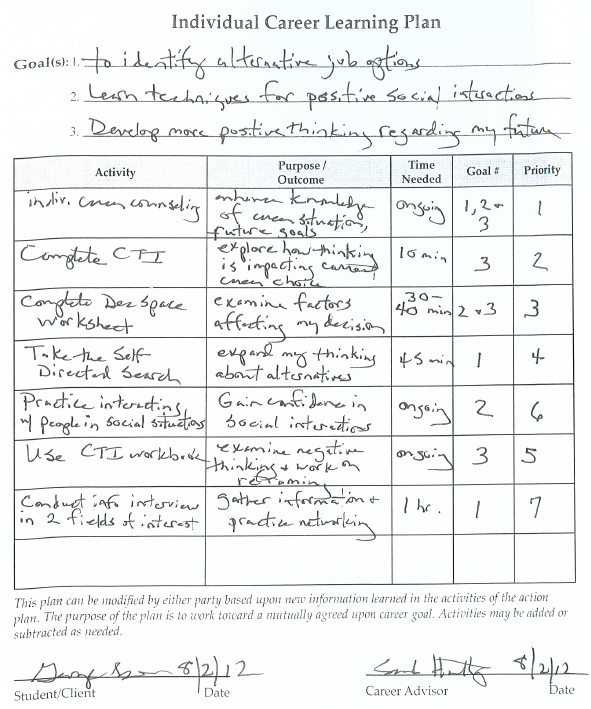 Individual Career Learning Plan
Goal(s): 1. to identify alternative job options
2. Learn techniques for positive social interactions
3. Develop more positive thinking regarding my future
Activity Purpose / Outcome Time Needed Goal # Priority
indiv. career counseling enhance knowledge of career situation, future goals ongoing 1, 2 + 3 1
Complete CTI explore how thinking is impacting current career choice 10 min 3 2
Complete Dec Space Worksheet examine factors affecting my decision 30-40 min 2 + 3 3
Take the Self Directed Search expand my thinking about alternatives 45 min 1 4
Practice interacting w/ people in social situations Gain confidence in social interactions ongoing 2 6
Use CTI workbook examine negative thinking + work on reframing ongoing 3 5
Conduct info interview in 2 fields of interest gather information + practice networking 1 hr. 1 7
This plan can be modified by either party based upon new information learned in the activities of the action
plan. The purpose of the plan is to work toward a mutually agreed upon career goal. Activities may be added or
subtracted as needed.
8/2/12 8/2/12
Student/Client Date Career Advisor Date